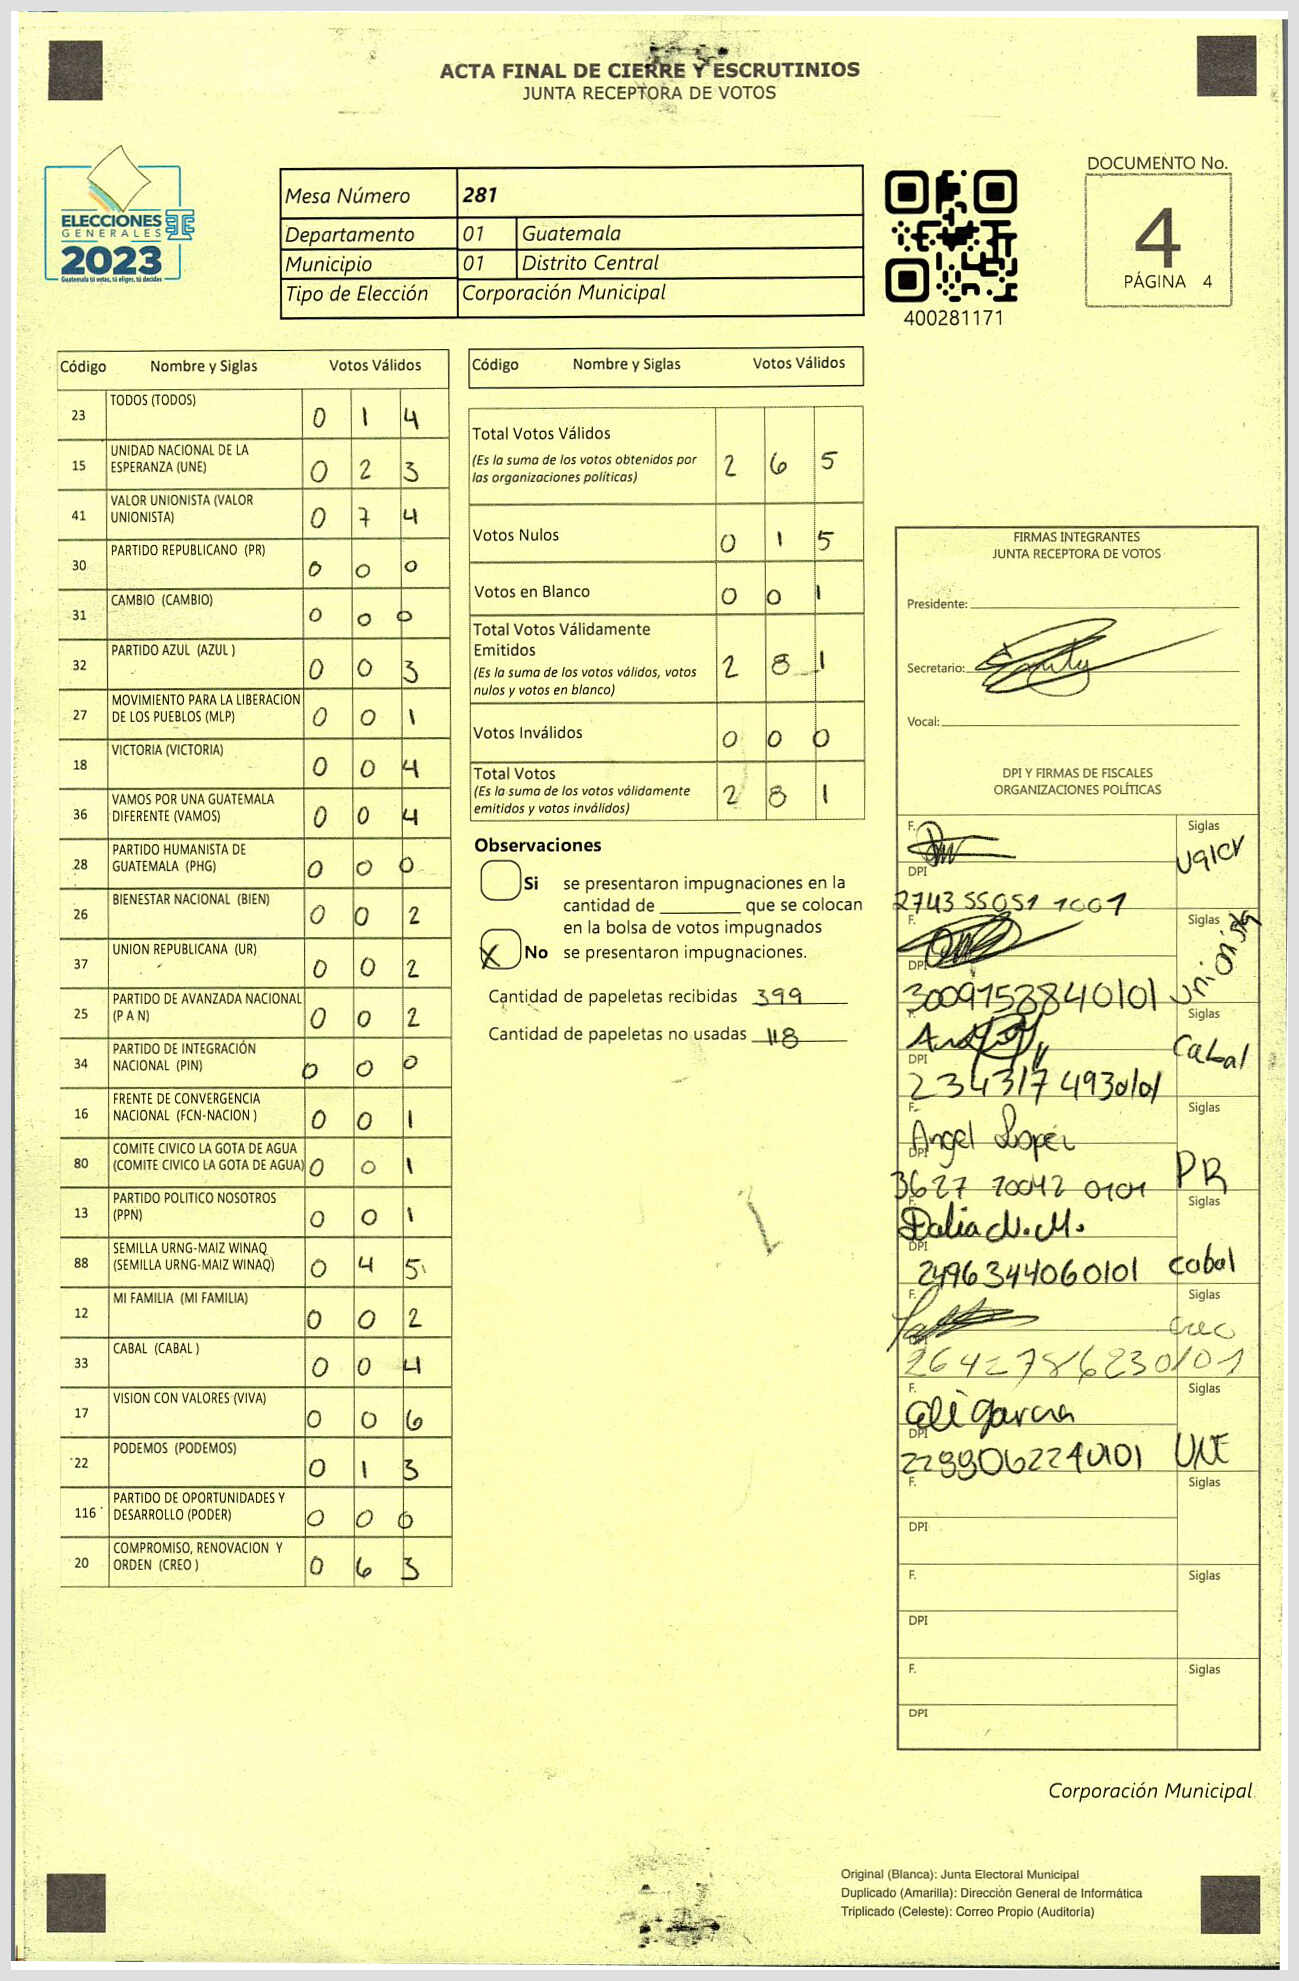 ACTA FINAL DE CIERRE Y ESCRUTINIOS
JUNTA RECEPTORA DE VOTOS
ELECCIONES
GENERALES
2023
Guatemala tú votas, tú eliges, tú decides
Mesa Número 281
Departamento 01 Guatemala
Municipio 01 Distrito Central
Tipo de Elección Corporación Municipal
400281171
DOCUMENTO No.
4
PÁGINA 4
Código Nombre y Siglas Votos Válidos
23 TODOS (TODOS) 0 1 4
15 UNIDAD NACIONAL DE LA ESPERANZA (UNE) 0 2 3
41 VALOR UNIONISTA (VALOR UNIONISTA) 0 7 4
30 PARTIDO REPUBLICANO (PR) 0 0 0
31 CAMBIO (CAMBIO) 0 0 0
32 PARTIDO AZUL (AZUL ) 0 0 3
27 MOVIMIENTO PARA LA LIBERACION DE LOS PUEBLOS (MLP) 0 0 1
18 VICTORIA (VICTORIA) 0 0 4
36 VAMOS POR UNA GUATEMALA DIFERENTE (VAMOS) 0 0 4
28 PARTIDO HUMANISTA DE GUATEMALA (PHG) 0 0 0
26 BIENESTAR NACIONAL (BIEN) 0 0 2
37 UNION REPUBLICANA (UR) 0 0 2
25 PARTIDO DE AVANZADA NACIONAL (P A N) 0 0 2
34 PARTIDO DE INTEGRACIÓN NACIONAL (PIN) 0 0 0
16 FRENTE DE CONVERGENCIA NACIONAL (FCN-NACION ) 0 0 1
80 COMITE CIVICO LA GOTA DE AGUA (COMITE CIVICO LA GOTA DE AGUA) 0 0 1
13 PARTIDO POLITICO NOSOTROS (PPN) 0 0 1
88 SEMILLA URNG-MAIZ WINAQ (SEMILLA URNG-MAIZ WINAQ) 0 4 5
12 MI FAMILIA (MI FAMILIA) 0 0 2
33 CABAL (CABAL ) 0 0 4
17 VISION CON VALORES (VIVA) 0 0 6
22 PODEMOS (PODEMOS) 0 1 3
116 PARTIDO DE OPORTUNIDADES Y DESARROLLO (PODER) 0 0 0
20 COMPROMISO, RENOVACION Y ORDEN (CREO ) 0 6 3
Código Nombre y Siglas Votos Válidos
Total Votos Válidos 2 6 5
(Es la suma de los votos obtenidos por
las organizaciones políticas)
Votos Nulos 0 1 5
Votos en Blanco 0 0 1
Total Votos Válidamente
Emitidos 2 8 1
(Es la suma de los votos válidos, votos
nulos y votos en blanco)
Votos Inválidos 0 0 0
Total Votos 2 8 1
(Es la suma de los votos válidamente
emitidos y votos inválidos)
Observaciones
Si se presentaron impugnaciones en la
cantidad de ________ que se colocan
en la bolsa de votos impugnados
X No se presentaron impugnaciones.
Cantidad de papeletas recibidas 399
Cantidad de papeletas no usadas 118
FIRMAS INTEGRANTES
JUNTA RECEPTORA DE VOTOS
Presidente:
Secretario:
Vocal:
DPI Y FIRMAS DE FISCALES
ORGANIZACIONES POLÍTICAS
F. Siglas
DPI Valor
2743 55051 1001
F. Siglas
DPI unionista
3009758840101
F. Siglas
DPI Cabal
2343174930101
F. Angel Lopez Siglas
DPI PR
3627 70042 0101
F. Dalia N. M. Siglas
DPI 2496344060101 cabal
F. Siglas
DPI creo
2642786230101
F. Garcia Siglas
DPI UNE
2299062240101
F. Siglas
DPI
F. Siglas
DPI
F. Siglas
DPI
Corporación Municipal
Original (Blanca): Junta Electoral Municipal
Duplicado (Amarilla): Dirección General de Informática
Triplicado (Celeste): Correo Propio (Auditoría)